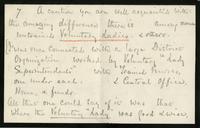 7. A caution you are well acquainted with
the amazing difference there is among
Voluntary Ladies
I was once connected with a large District
Organization worked by Voluntary "Lady
Superintendents" with Trained Nurses,
one under each. & Central Office,
Home, & funds.
All that one could say of it was that
where the Voluntary Lady was good & wise,